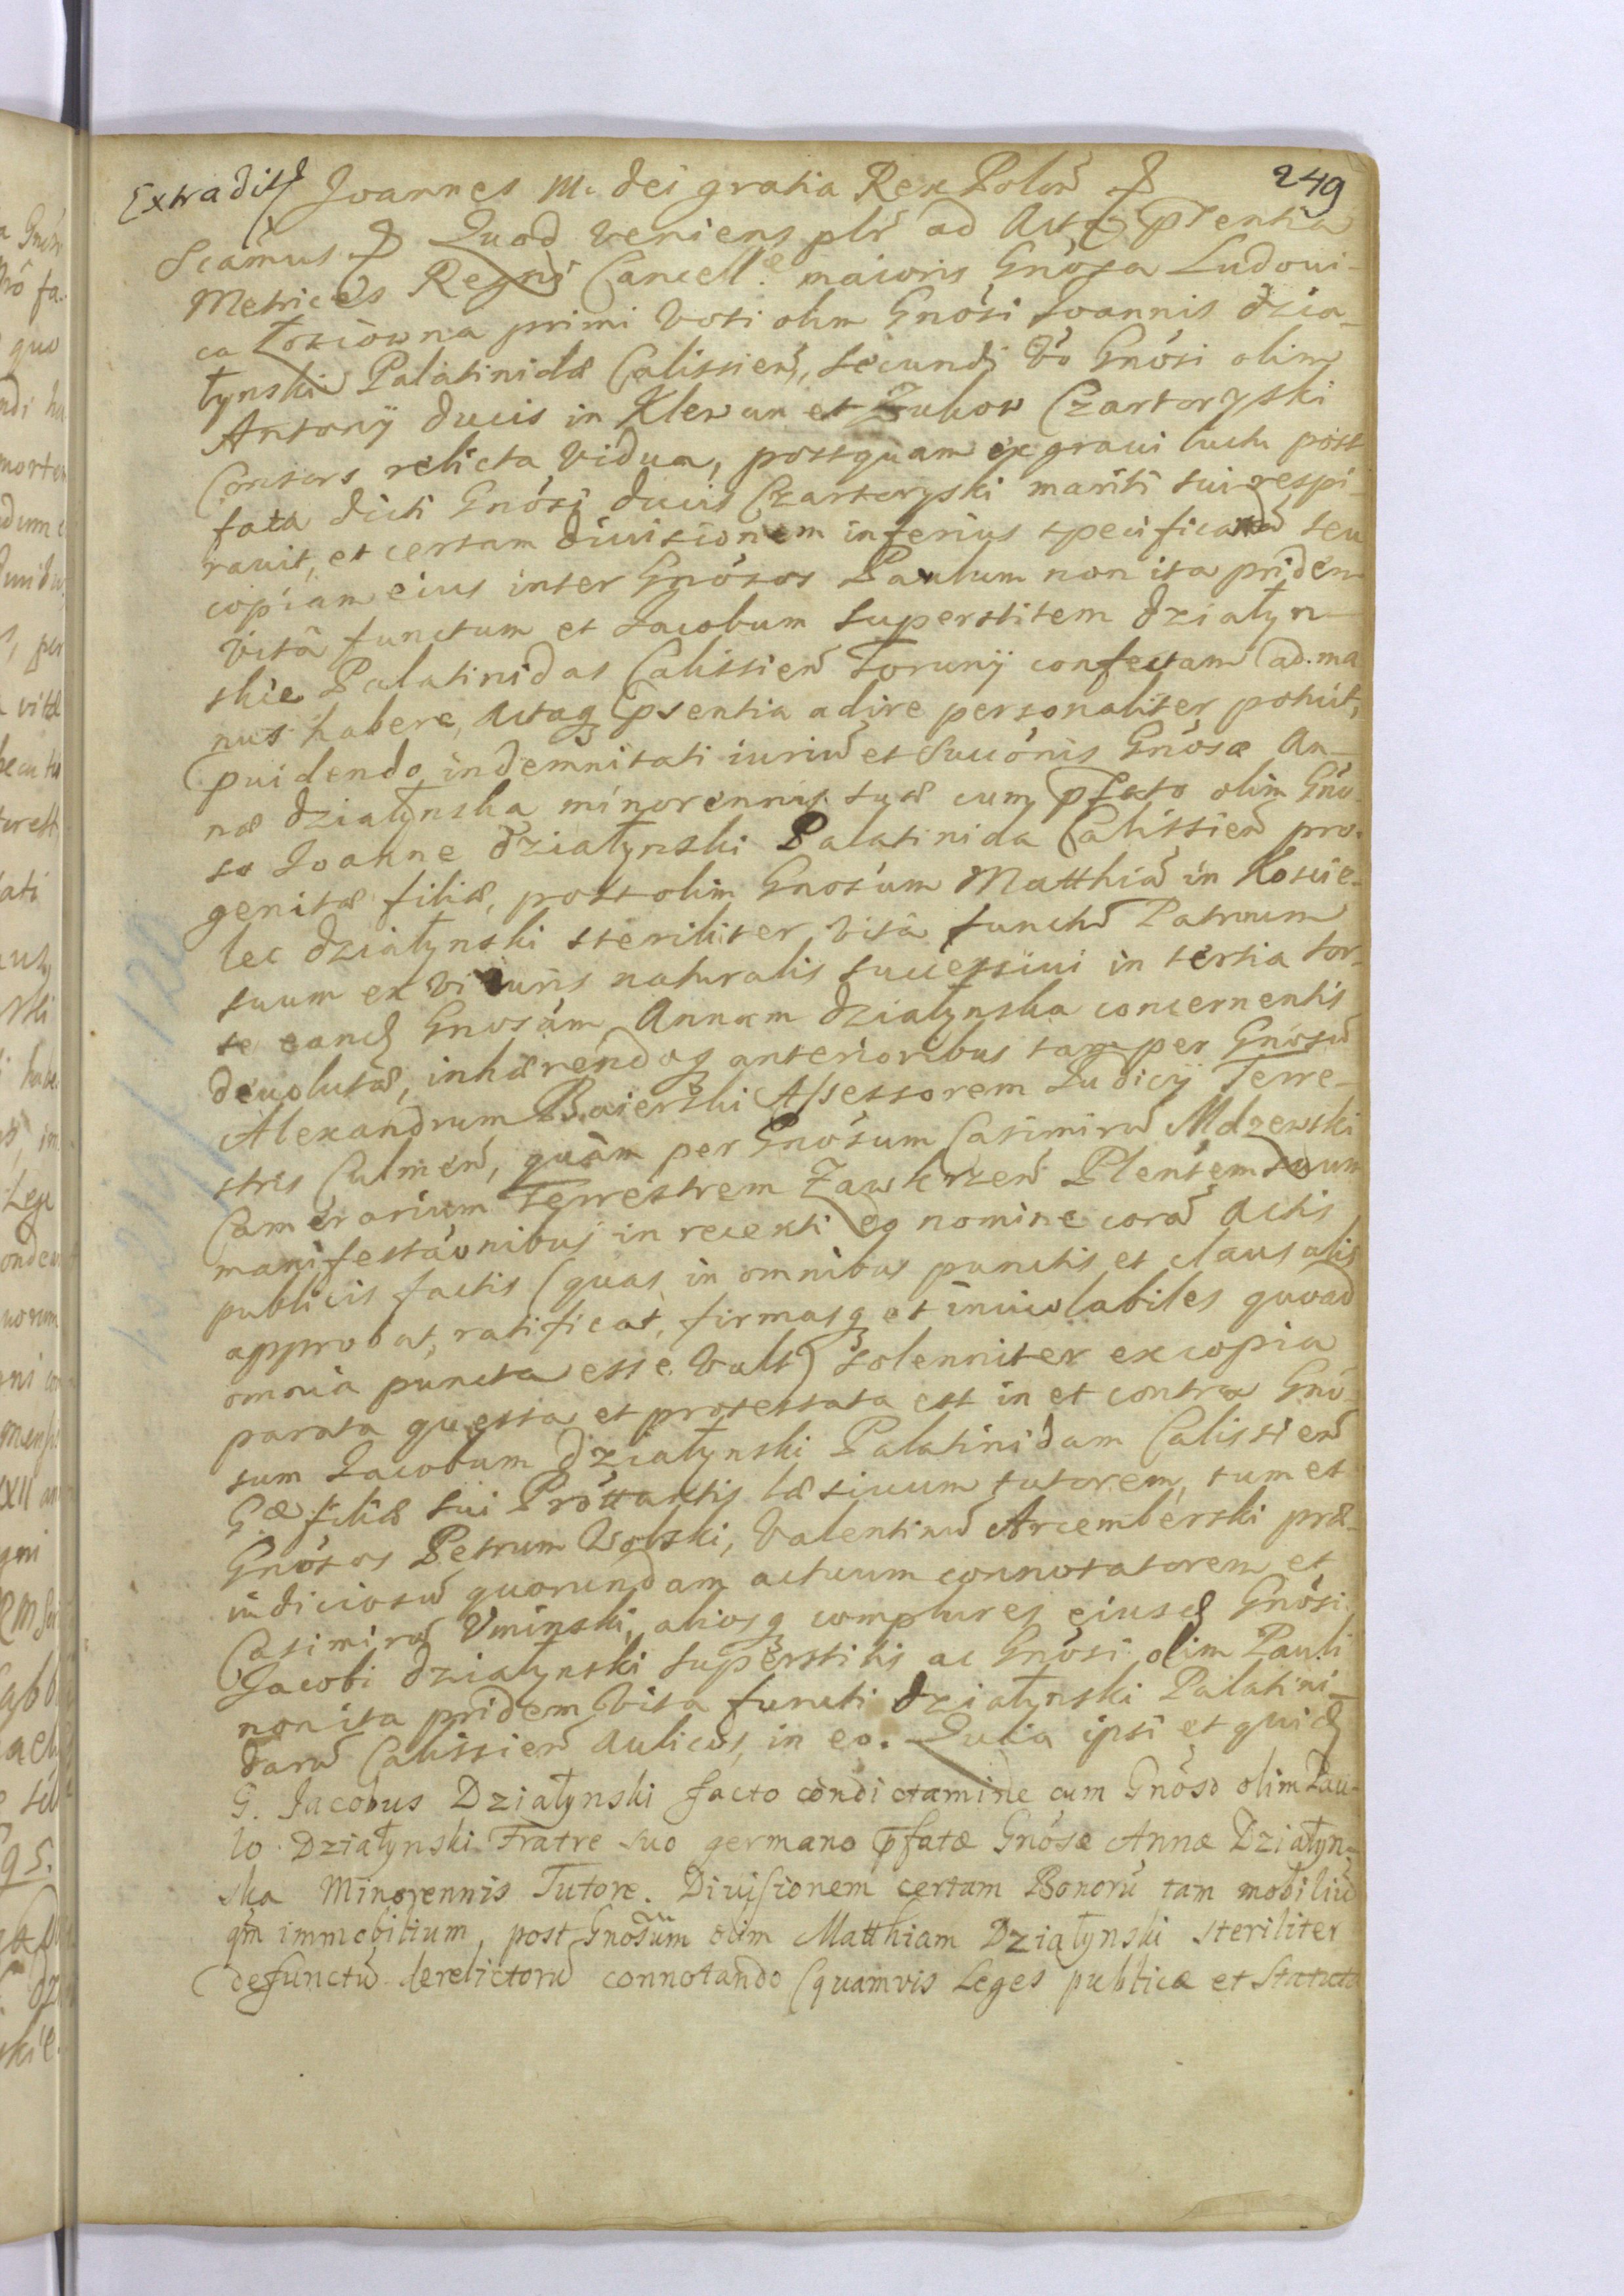 Extradit 249
Joannes III. dei gratia Rex Polon̄
Scamus. Quod veniens plr ad Acta pn̄tentia
Metrices Regni Cancell.ӕ maioris Gnósa Ludoui-
ca primi voti olim Gnósi Joannis dzia-
łynski Palatinidæ Calissien̄, secundi vó Gnósi olim
Antonij ducis in Klewan et Zukow Czartoryski
Consors relicta vidua, postquam ex graui luctu post
fata dicti Gnósi ducis Czartoryski mariti sui respi-
rauit, et certam diuisionem inferius specificand̄ seu
copiam eius inter Gnósos Paulum non ita pridem
vitâ functum et Jacobum superstitem działyn-
skie Palatinidas Calissien̄ Torunij confectam ad ma
nus habere, Actaq psentia adire personaliter potuit,
puidendo indemnitati iuriū et Succónis Gnósæ An-
næ działynska minorennis suæ cum pfato olim Gnó-
so Joanne działynski Palatinida Calissien̄ pro-
genitæ filiæ, post olim Gnósum Matthiā in Koscie-
lec działynski steriliter vitâ functū Patruum
suum ex vi iuris naturalis successiui in tertia sor-
te eand Gnosám Annam działynska concernentis
deuolutæ, inhærendoq anterioribus tam per Gnósū
Alexandrum Baierski Assessorem Judicij Terre-
stris Culmen̄, quàm per Gnósum Casimirū Mdzewski
Camerarium Terrestrem Zawkrzen̄ Plenśem suum
manifestáonibus in recenti eo nomine corā Actis
publicis factis (quas in omnibus punctis et clausulis
approbat, ratificat, firmasq et inuiolabiles quoad
omnia puncta esse vult) solenniter ex copia
parata questa et protestata est in et contra Gnó-
sum Jacobum działynski Palatinidam Calissien̄
G.æ filiæ sui Próttantis læsiuum tutorem, tum et
Gnósos Petrum Wolski, Valentinū Arcemberski præ-
iudiciosū quorundam actuum connotatorem et
Casimirū Vminski, aliosq complures eiusd Gnósi
Jacobi działynski superstitis ac Gnósi olim Pauli
non ita pridem vita functi działynski Palatini-
darū Calissien̄ Aulicos, in eo. Quia ipsi et quid
G. Jacobus Działynski facto condictamine cum Gnóso olim Pau-
lo Działynski Fratre suo germano pfatæ Gnósæ Annæ Działyn-
ska Minorennis Tutore. Diuisionem certam Bonorū tam mobiliū
qm̄ immobilium, post Gnósum olim Matthiam Działynski steriliter
defunctū derelictorū connotando (quamvis Leges publicæ et Statuta